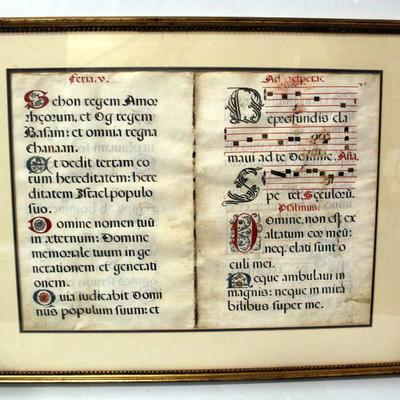 Feria.v.
Sehon regem Amor
rheorum, et Og regem
Basam: et omnia regna
Chanaan.
Et dedit terram eo
rum hereditatem: here
ditatem Israel populo
suo.
Domine nomen tuũ
in æternum: Domine
memoriale tuum in ge
nerationem et generati
onem.
Quia iudicabit Domi
nus populum suum: et
Ad vesperas.
De profundis cla
maui ad te Domine. Aña.
Spe ret. Seculorũ.
Psalmus.
Domine, non est ex
altatum cor meũ:
neq. elati sunt o
culi mei.
Neque ambulaui in
magnis: neque in mira
bilibus super me.